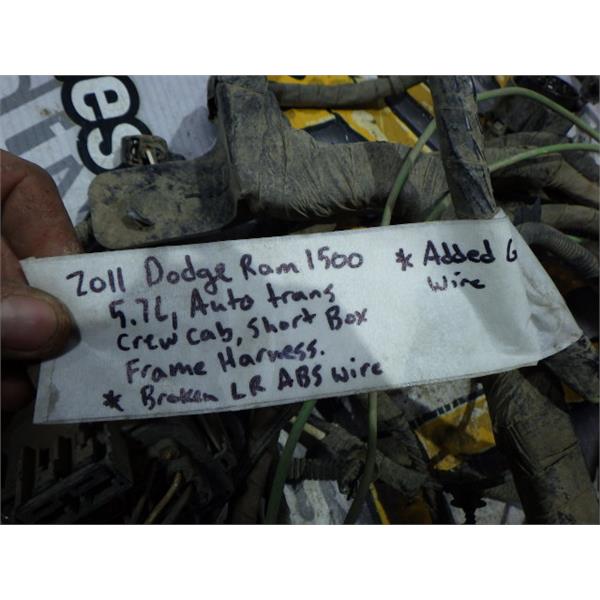 2011 Dodge Ram 1500 * Added G
Wire
5.7L, Auto trans
Crew Cab, Short Box
Frame Harness.
* Broken LR ABS Wire
es